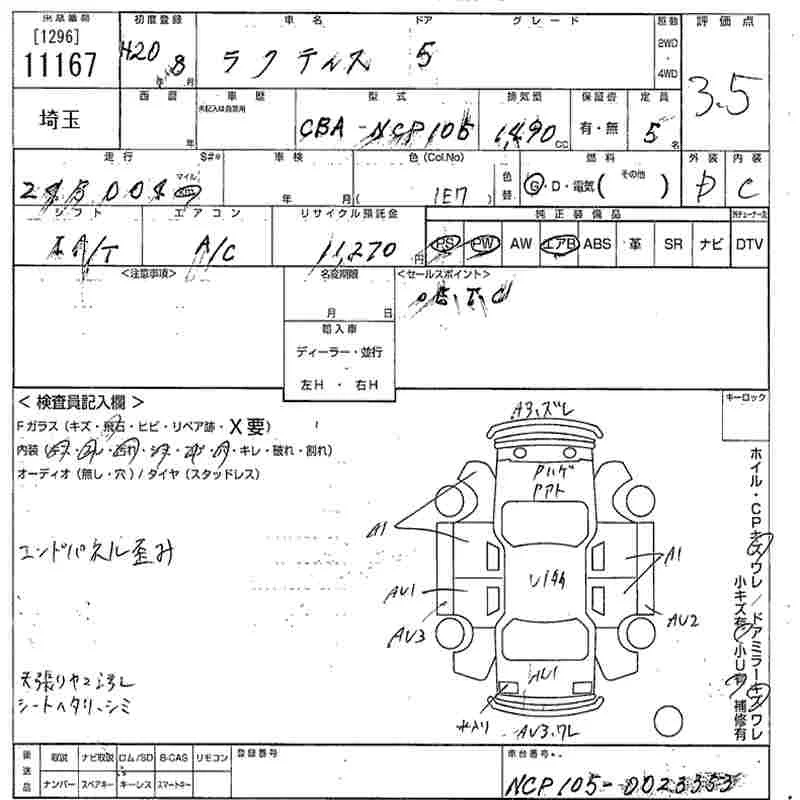 出品番号 初度登録 車名 ドア グレード 駆動 評価点
[1296]
11167 H20年8月 ラクティス 5 2WD・4WD 3.5
埼玉 西暦 年 車歴 未記入は自家用 型式 CBA-NCP105 排気量 1,490cc 保証書 有・無 定員 5名
走行 S#* マイル 車検 年 月 色(Col.No) 1E7 色替 燃料 G・D・電気( その他 ) 外装 D 内装 C
シフト エアコン A/C リサイクル預託金 11,270円 純正装備品 PS PW AW エアB ABS 革 SR ナビ DTV
<注意事項> 名変期限 月 日 <セールスポイント>
輸入車
ディーラー・並行
左H・右H
<検査員記入欄> キーロック
Fガラス(キズ・飛石・ヒビ・リペア跡・X要)
内装(・汚れ・キレ・破れ・割れ)
オーディオ(無し・穴)/タイヤ(スタッドレス)
エンドパネル歪み
天張りヤニ汚レ
シートヘタリ、シミ
A3、ズレ
Pハゲ
Pアト
A1
A1
AU1
AU3
AU2
水入り
AU3.ワレ
ホイル・CPキズワレ/ドアミラーキズワレ
小キズ有 小U有 補修有
後送品 取説 ナビ取説 ロム/SD B-CAS リモコン 登録番号 車台番号
ナンバー スペアキー キーレス スマートキー NCP105-0023353